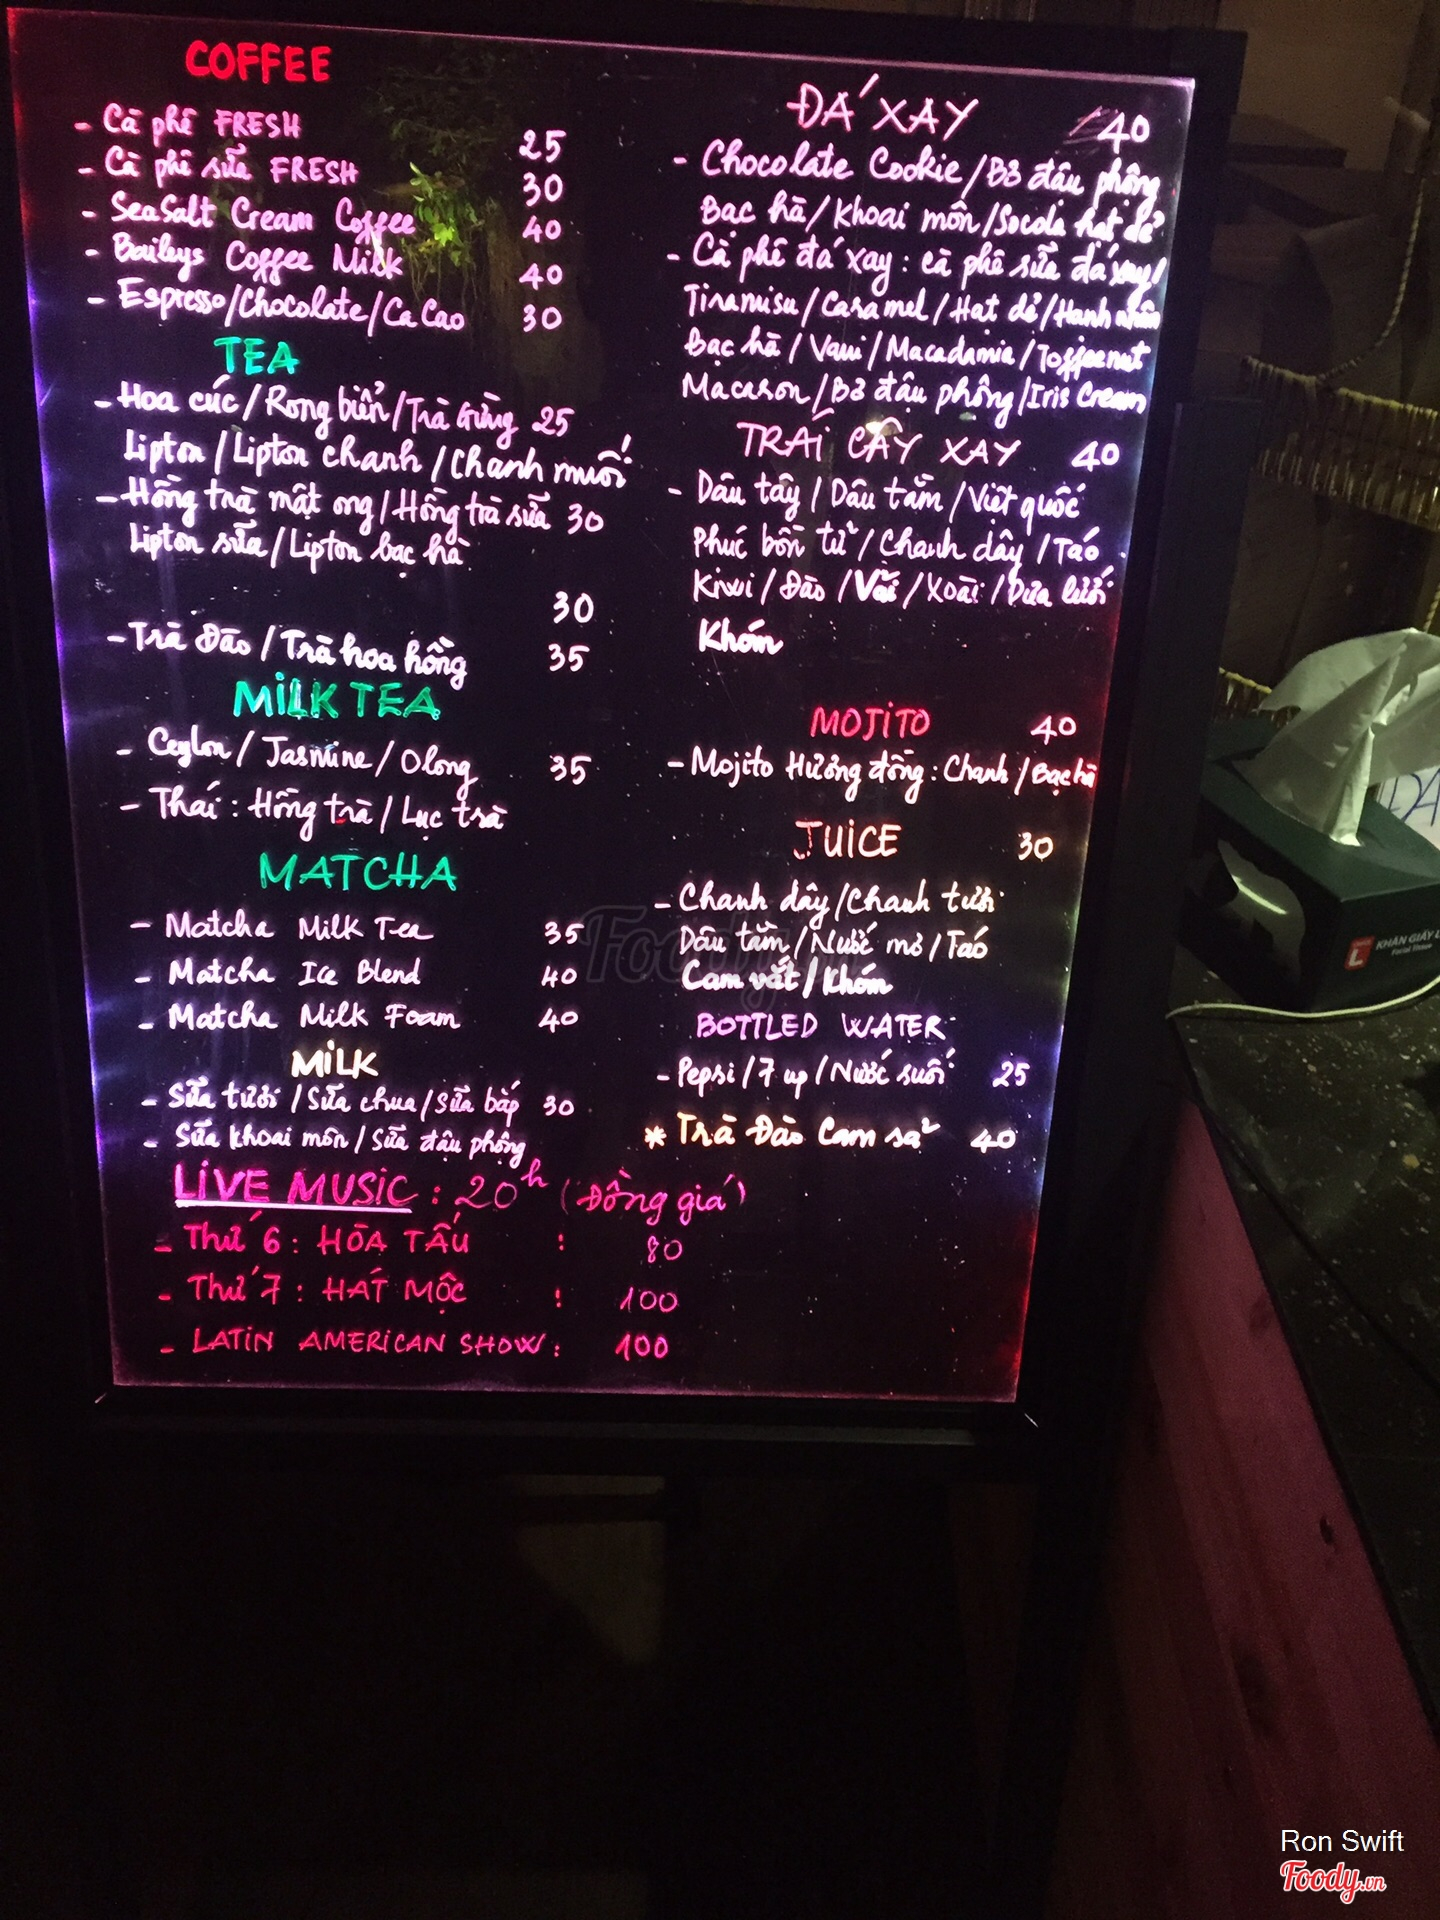 COFFEE
- Cà phê FRESH 25
- Cà phê sữa FRESH 30
- SeaSalt Cream Coffee 40
- Baileys Coffee Milk 40
- Espresso/Chocolate/CaCao 30
TEA
- Hoa cúc/Rong biển/Trà Gừng 25
Lipton/Lipton chanh/Chanh muối
- Hồng trà mật ong/Hồng trà sữa 30
Lipton sữa/Lipton bạc hà
30
- Trà Đào/Trà hoa hồng 35
MILK TEA
- Ceylon/Jasmine/Olong 35
- Thái: Hồng trà/Lục trà
MATCHA
- Matcha Milk Tea 35
- Matcha Ice Blend 40
- Matcha Milk Foam 40
MILK
- Sữa tươi/Sữa chua/Sữa bắp 30
- Sữa khoai môn/Sữa đậu phộng
ĐÁ XAY 40
- Chocolate Cookie/Bơ đậu phộng
Bạc hà/Khoai môn/Socola hạt dẻ
- Cà phê đá xay: cà phê sữa đá xay/
Tiramisu/Caramel/Hạt dẻ/Hạnh nhân
Bạc hà/Vani/Macadamia/Toffeenut
Macaron/Bơ đậu phộng/Iris Cream
TRÁI CÂY XAY 40
- Dâu tây/Dâu tằm/Việt quốc
Phúc bồn tử/Chanh dây/Táo
Kiwi/Đào/Vải/Xoài/Dưa lưới
Khóm
MOJITO 40
- Mojito Hương đồng: Chanh/Bạc hà
JUICE 30
- Chanh dây/Chanh tươi
Dâu tằm/Nước mơ/Táo
Cam vắt/Khóm
BOTTLED WATER
- Pepsi/7 up/Nước suối 25
* Trà Đào Cam sả 40
LIVE MUSIC: 20h (Đồng giá)
- Thứ 6: HÒA TẤU : 80
- Thứ 7: HÁT MỘC : 100
- LATIN AMERICAN SHOW: 100
Foody.vn
KHĂN GIẤY L
Facial Tissue
Ron Swift
Foody.vn